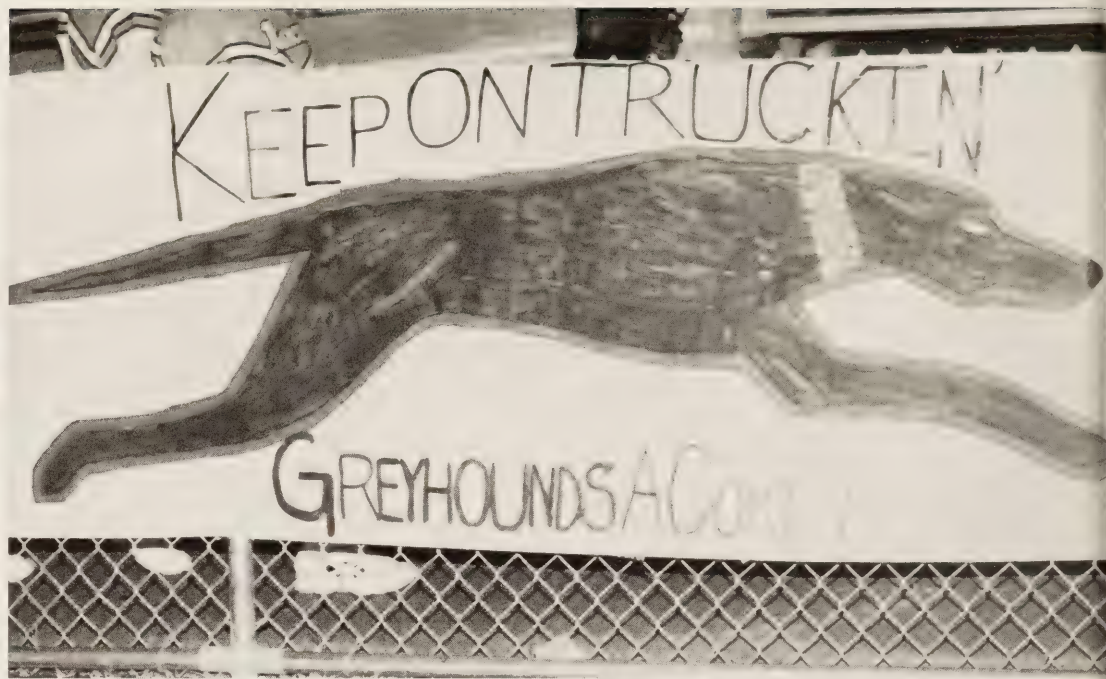 KEEP ON TRUCKIN'
GREYHOUNDS A